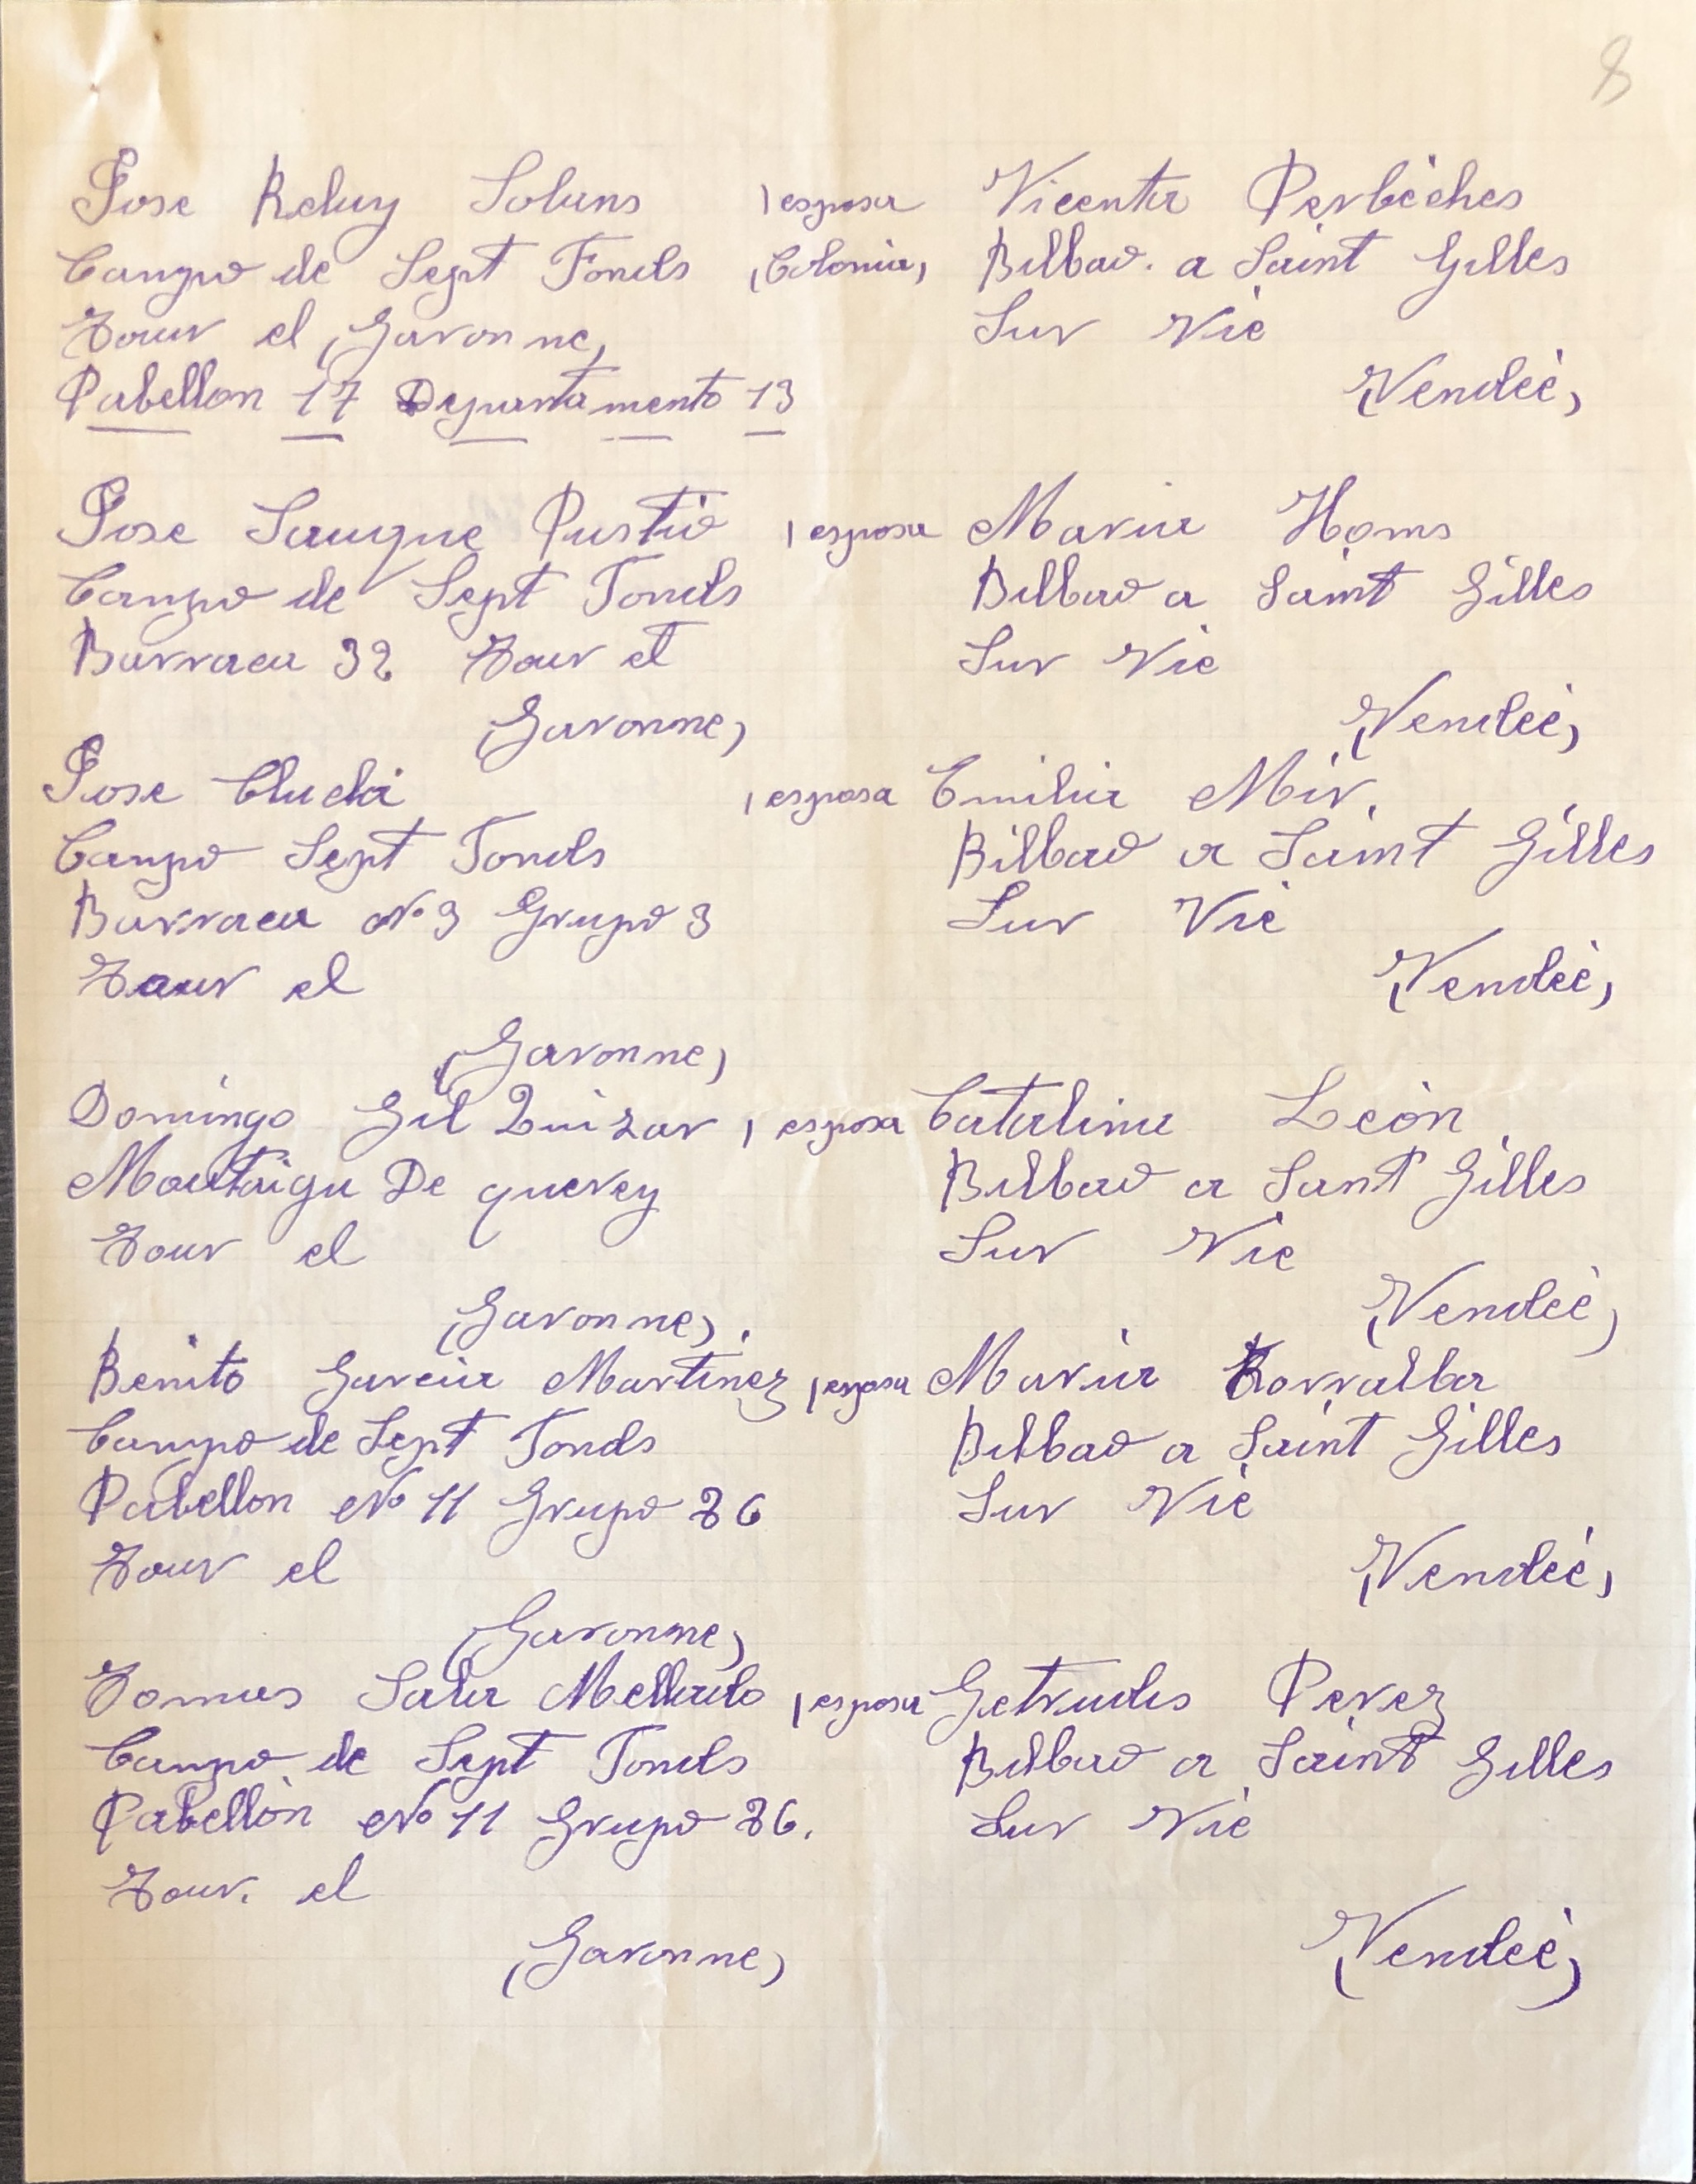 8
Jose Reluy Solans (esposa Vicenta Perbèches
Campo de Sept Fonds (Colonia) Bilbao. a Saint Gilles
Tour el (Garonne) Sur Vie
Pabellon 17 Departamento 13 (Vendèe)
Jose Sauque Pustio (esposa Maria Homs
Campo de Sept Fonds Bilbao a Saint Gilles
Barraca 32 Tour et Sur Vie
(Garonne) (Vendèe)
Jose Cluchi (esposa Emilia Mir.
Campo Sept Fonds Bilbao a Saint Gilles
Barraca No 3 Grupo 3 Sur Vie
Tour el (Vendèe)
(Garonne)
Domingo Gil Luizar (esposa Catalina León
Moutaigu De querey Bilbao a Sant Gilles
Tour el Sur Vie
(Garonne) (Vendèe)
Benito Garcia Martinez (esposa Maria Torralba
Campo de Sept Fonds Bilbao a Saint Gilles
Pabellon No 11 Grupo 26 Sur Vie
Tour el (Vendèe)
(Garonne)
Tomas Sala Mellado (esposa Getrudis Perez
Campo de Sept Fonds Bilbao a Saint Gilles
Pabellòn No 11 Grupo 26. Sur Vie
Tour. el
(Garonne) (Vendèe)